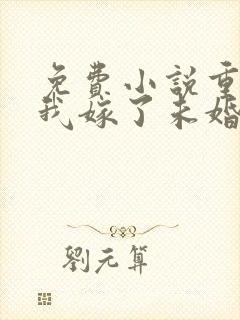 免费小说重
我嫁了未婚
劉元算